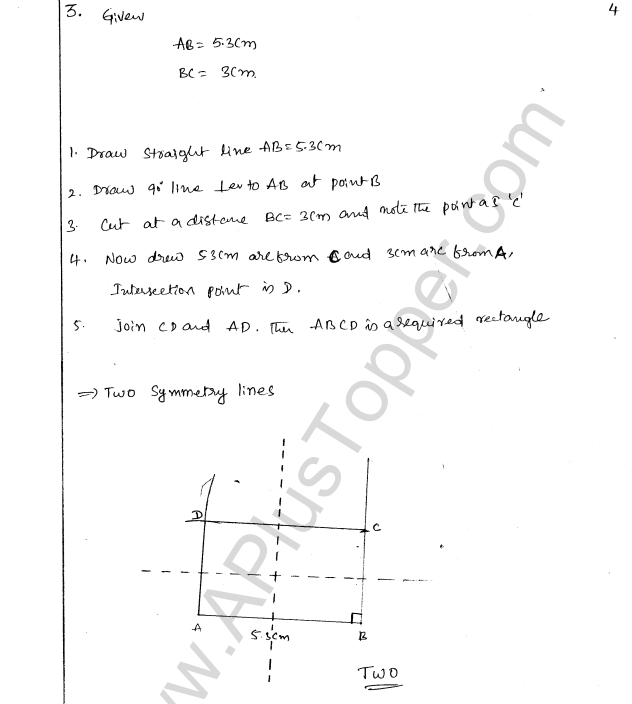 3. Given
4
AB = 5.3cm
BC = 3cm.
1. Draw straight line AB = 5.3cm
2. Draw 90° line ⊥er to AB at point B
3. Cut at a distane BC = 3cm and note the point as 'C'
4. Now drew 5.3cm arc from C and 3cm arc from A,
Intersection point is D.
5. Join CD and AD. Then ABCD is a required rectangle
⇒ Two Symmetry lines
D
C
A
5.3cm
B
Two
www.APlusTopper.com